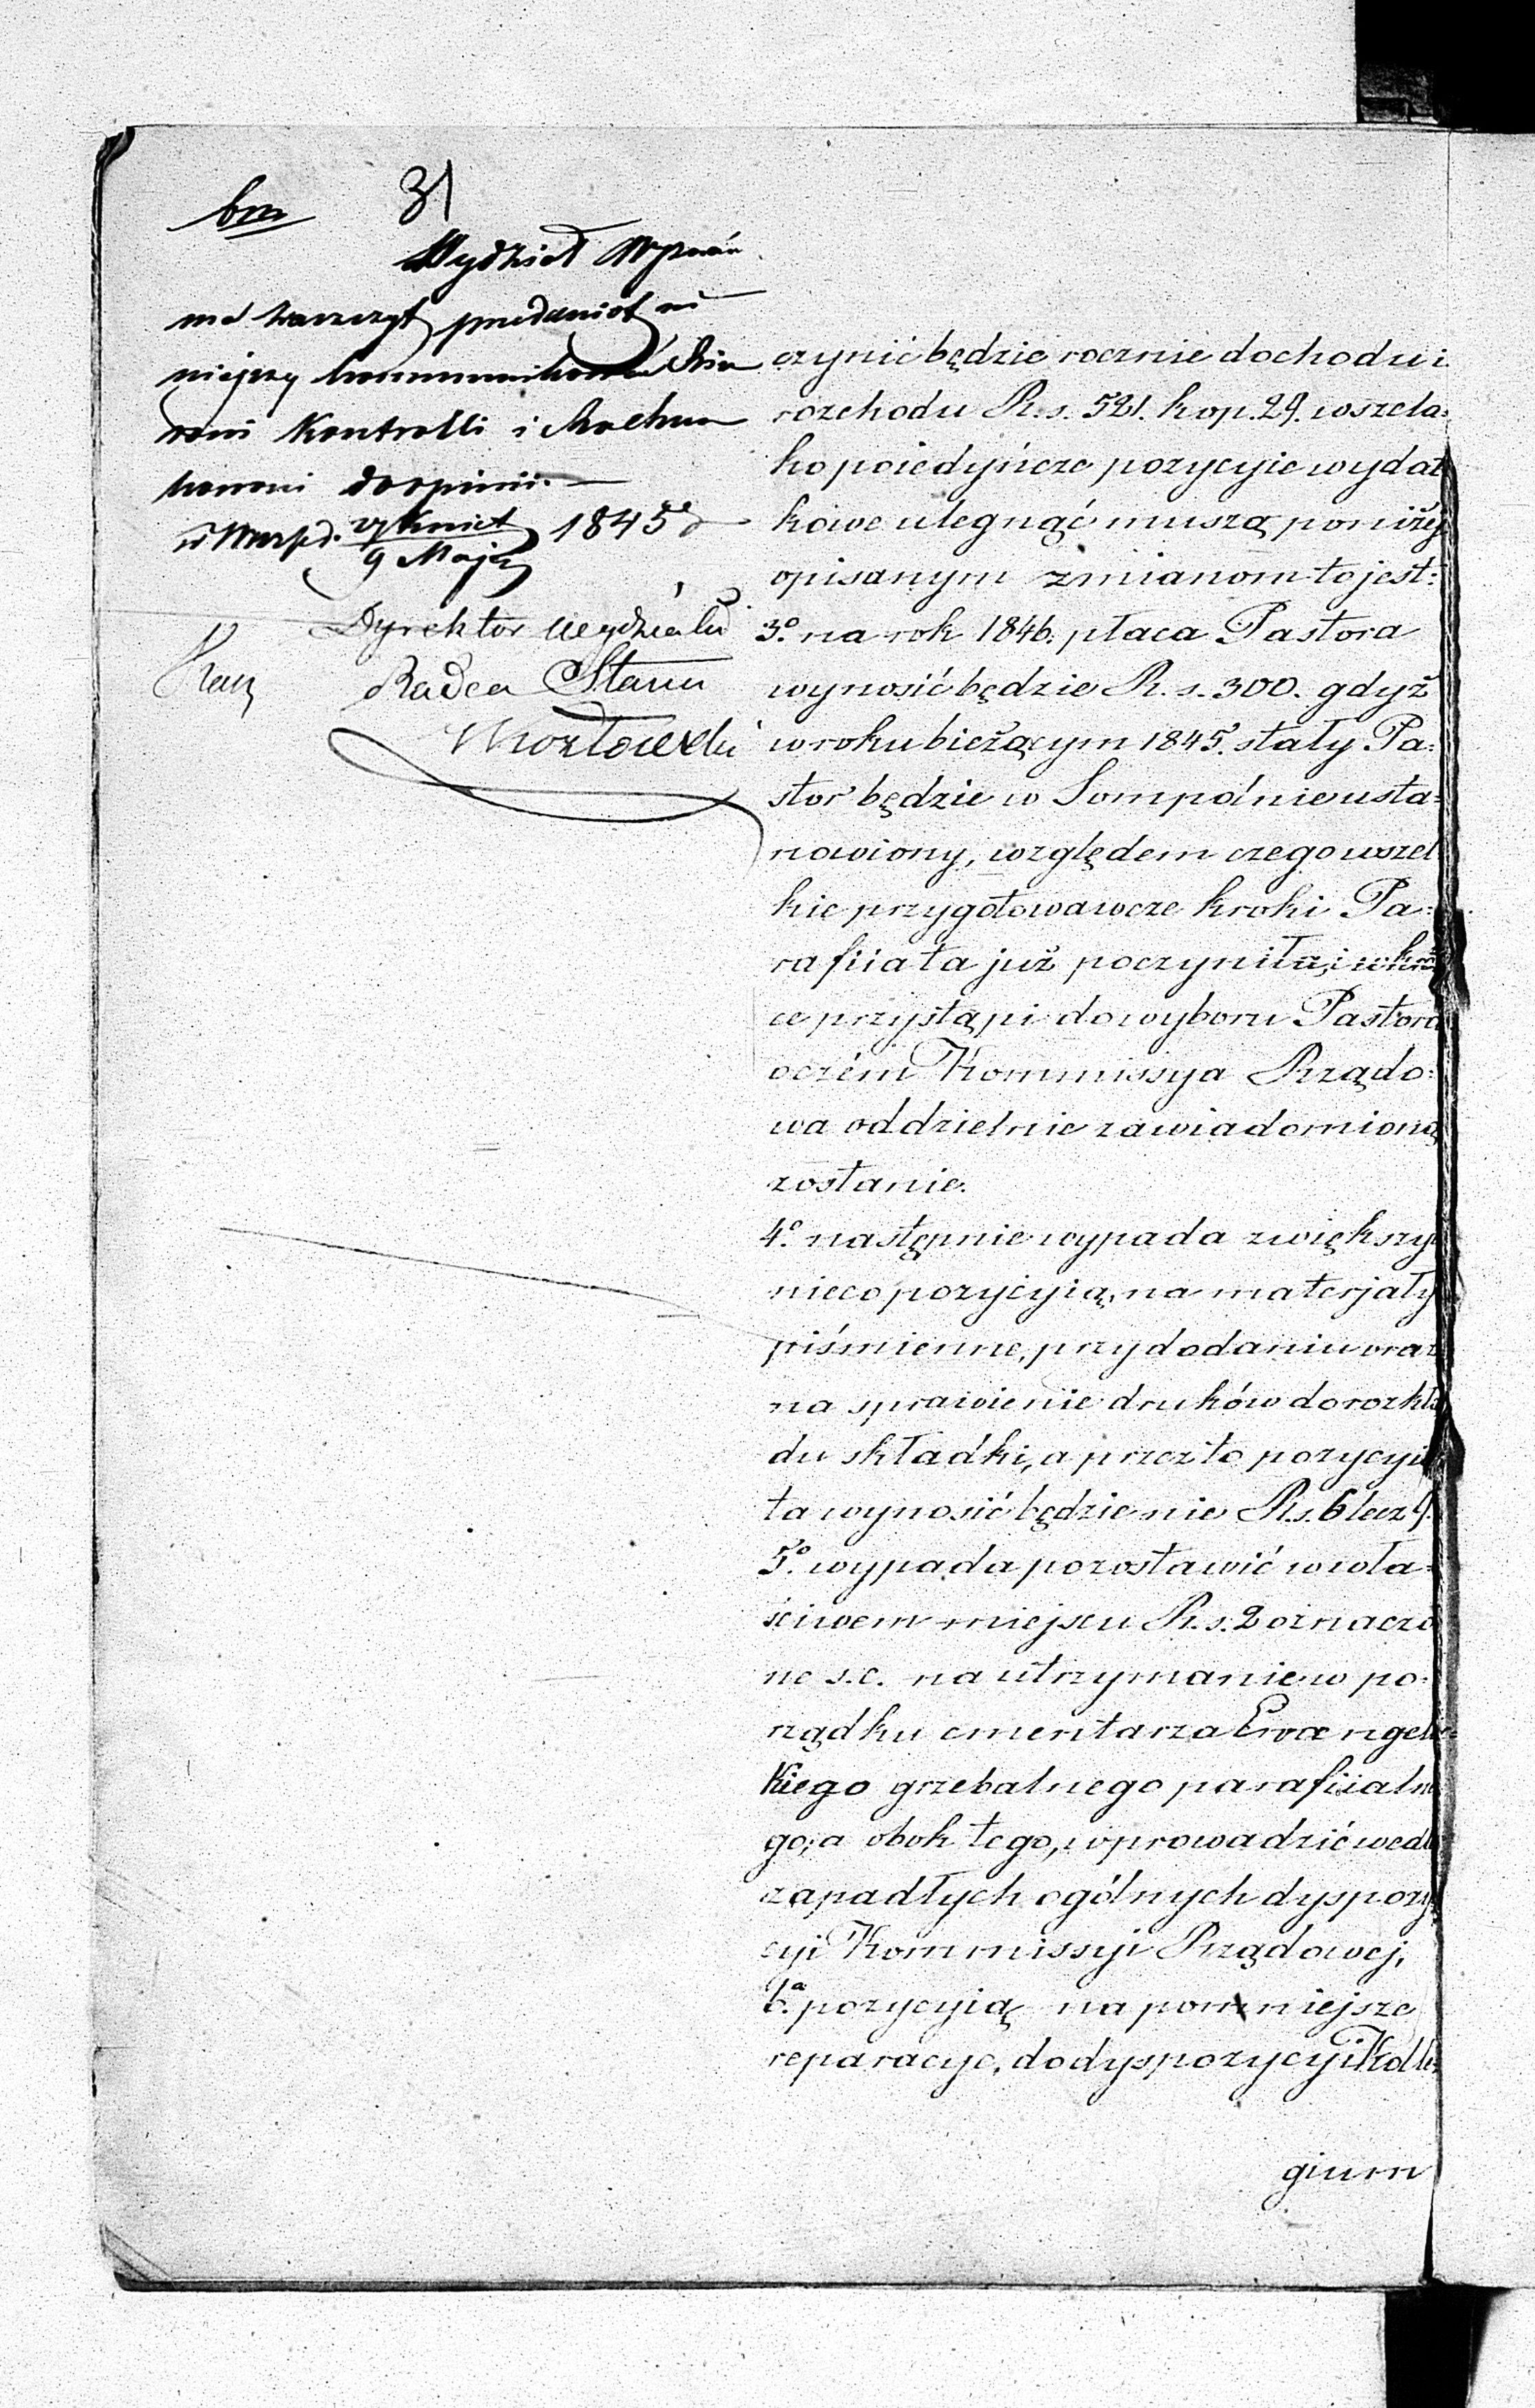 31
Wydział Wyznań
ma zaszczyt przedmiot ni
niejszy kommunikować
Kontrolli i Rachun
kowości do opinii.
27 Kwiet
9 Maja 1845
Dyrektor Wydziału
Radca Stanu
Kozłowski
czynić będzie rocznie dochodu i
rozchodu R. s. 521. kop. 29. wszela:
ko poiedyńcze pozycyie wydat
kowe ulegnąć muszą poniżéj
opisanym zmianom to jest:
3o. na rok 1846. płaca Pastora
wynosić będzie R. s. 300. gdyż
w roku bieżącym 1845. stały Pa:
stor będzie w Sompolnie usta:
nowiony, względem czego wszel
kie przygotowawcze kroki Pa:
rafiia ta już poczyniła, i wkrót
ce przystąpi do wyboru Pastora
oczém Kommissya Rządo:
wa oddzielnie zawiadomioną
zostanie.
4o. następnie wypada zwiększyć
nieco pozycyią, na materjały
piśmienne, przy dodaniu oraz
na sprawienie druków do rozkła
du składki, a przez to pozycyia
ta wynosić będzie nie R.s. 6 lecz 9.
5o. wypada pozostawić w wła:
ściwem miejscu R. s. 2 oznaczo
ne s.c. na utrzymanie w po:
rządku cmentarza Ewangelic:
kiego grzebalnego parafiialne
go; a obok tego, wprowadzić wedle
zapadłych ogólnych dyspozy
cyi Kommissyi Rządowej,
6a. pozycyią na pomniejsze
reparacye, do dyspozycyi Kolle:
gium